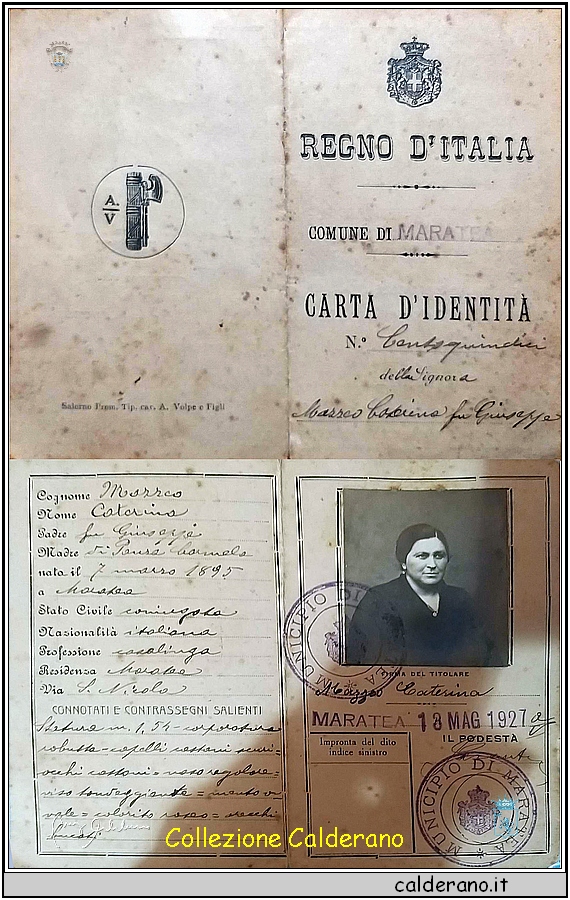 A.
V
Salerno Prem. Tip. cav. A. Volpe e Figli
REGNO D'ITALIA
COMUNE DI MARATEA
CARTA D'IDENTITÀ
N.º Centoquindici
della Signora
Mazzeo Caterina fu Giuseppe
Cognome Mazzeo
Nome Caterina
Padre fu Giuseppe
Madre di Carmela
nata il 7 marzo 1895
a Maratea
Stato Civile coniugata
Nazionalità italiana
Professione casalinga
Residenza Maratea
Via S. Nicola
CONNOTATI E CONTRASSEGNI SALIENTI
Statura m. 1,54 - corporatura
robusta - capelli castani scuri -
occhi castani = naso regolare =
viso tondeggiante = mento o-
vale = colorito roseo = orecchi
MUNICIPIO DI MARATEA
FIRMA DEL TITOLARE
Mazzeo Caterina
MARATEA 13 MAG 1927
IL PODESTÀ
Impronta del dito
indice sinistro
MUNICIPIO DI MARATEA
Collezione Calderano
calderano.it